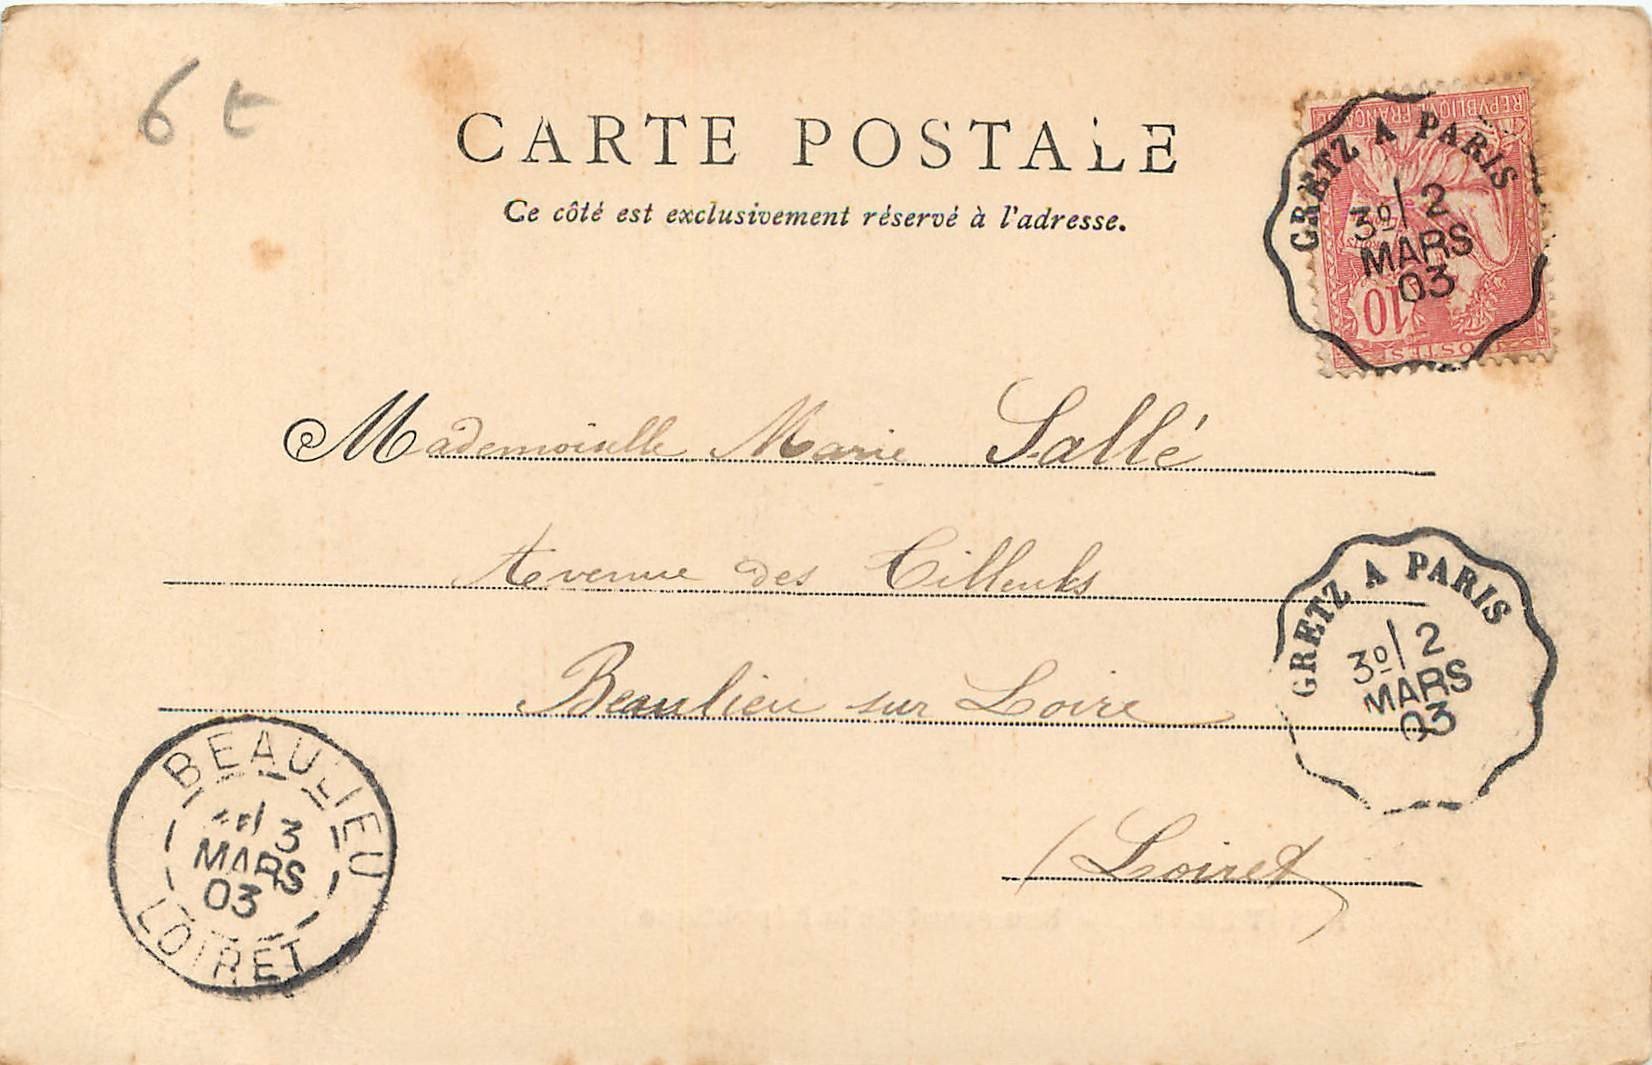 6 €
CARTE POSTALE
Ce côté est exclusivement réservé à l'adresse.
REPVBLIQVE FRANÇAISE
10
POSTES
GRETZ A PARIS
3º 2
MARS
03
Mademoiselle Marie Sallé
Avenue des Tilleuls
Beaulieu sur Loire
(Loiret)
GRETZ A PARIS
3º 2
MARS
03
BEAULIEU
3
MARS
03
LOIRET